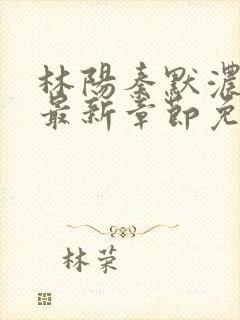 林陽秦默濃
最新章節免
林荣